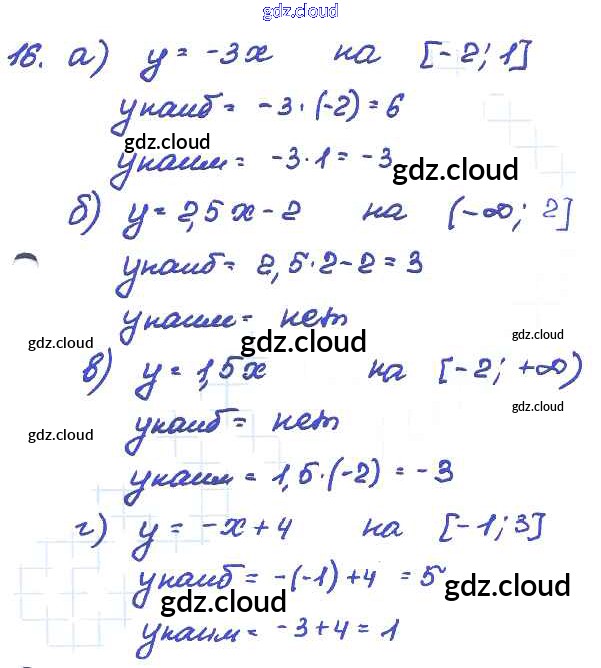 gdz.cloud
16. а) y = -3x на [-2; 1]
yнаиб = -3·(-2) = 6
gdz.cloud
yнаим = -3·1 = -3
gdz.cloud
б) y = 2,5x - 2 на (-∞; 2]
yнаиб = 2,5·2-2 = 3
yнаим = нет
gdz.cloud gdz.cloud gdz.cloud
в) y = 1,5x на [-2; +∞)
gdz.cloud
yнаиб = нет
gdz.cloud
yнаим = 1,5·(-2) = -3
г) y = -x + 4 на [-1; 3]
yнаиб = -(-1) +4 = 5
gdz.cloud gdz.cloud
yнаим = -3+4 = 1